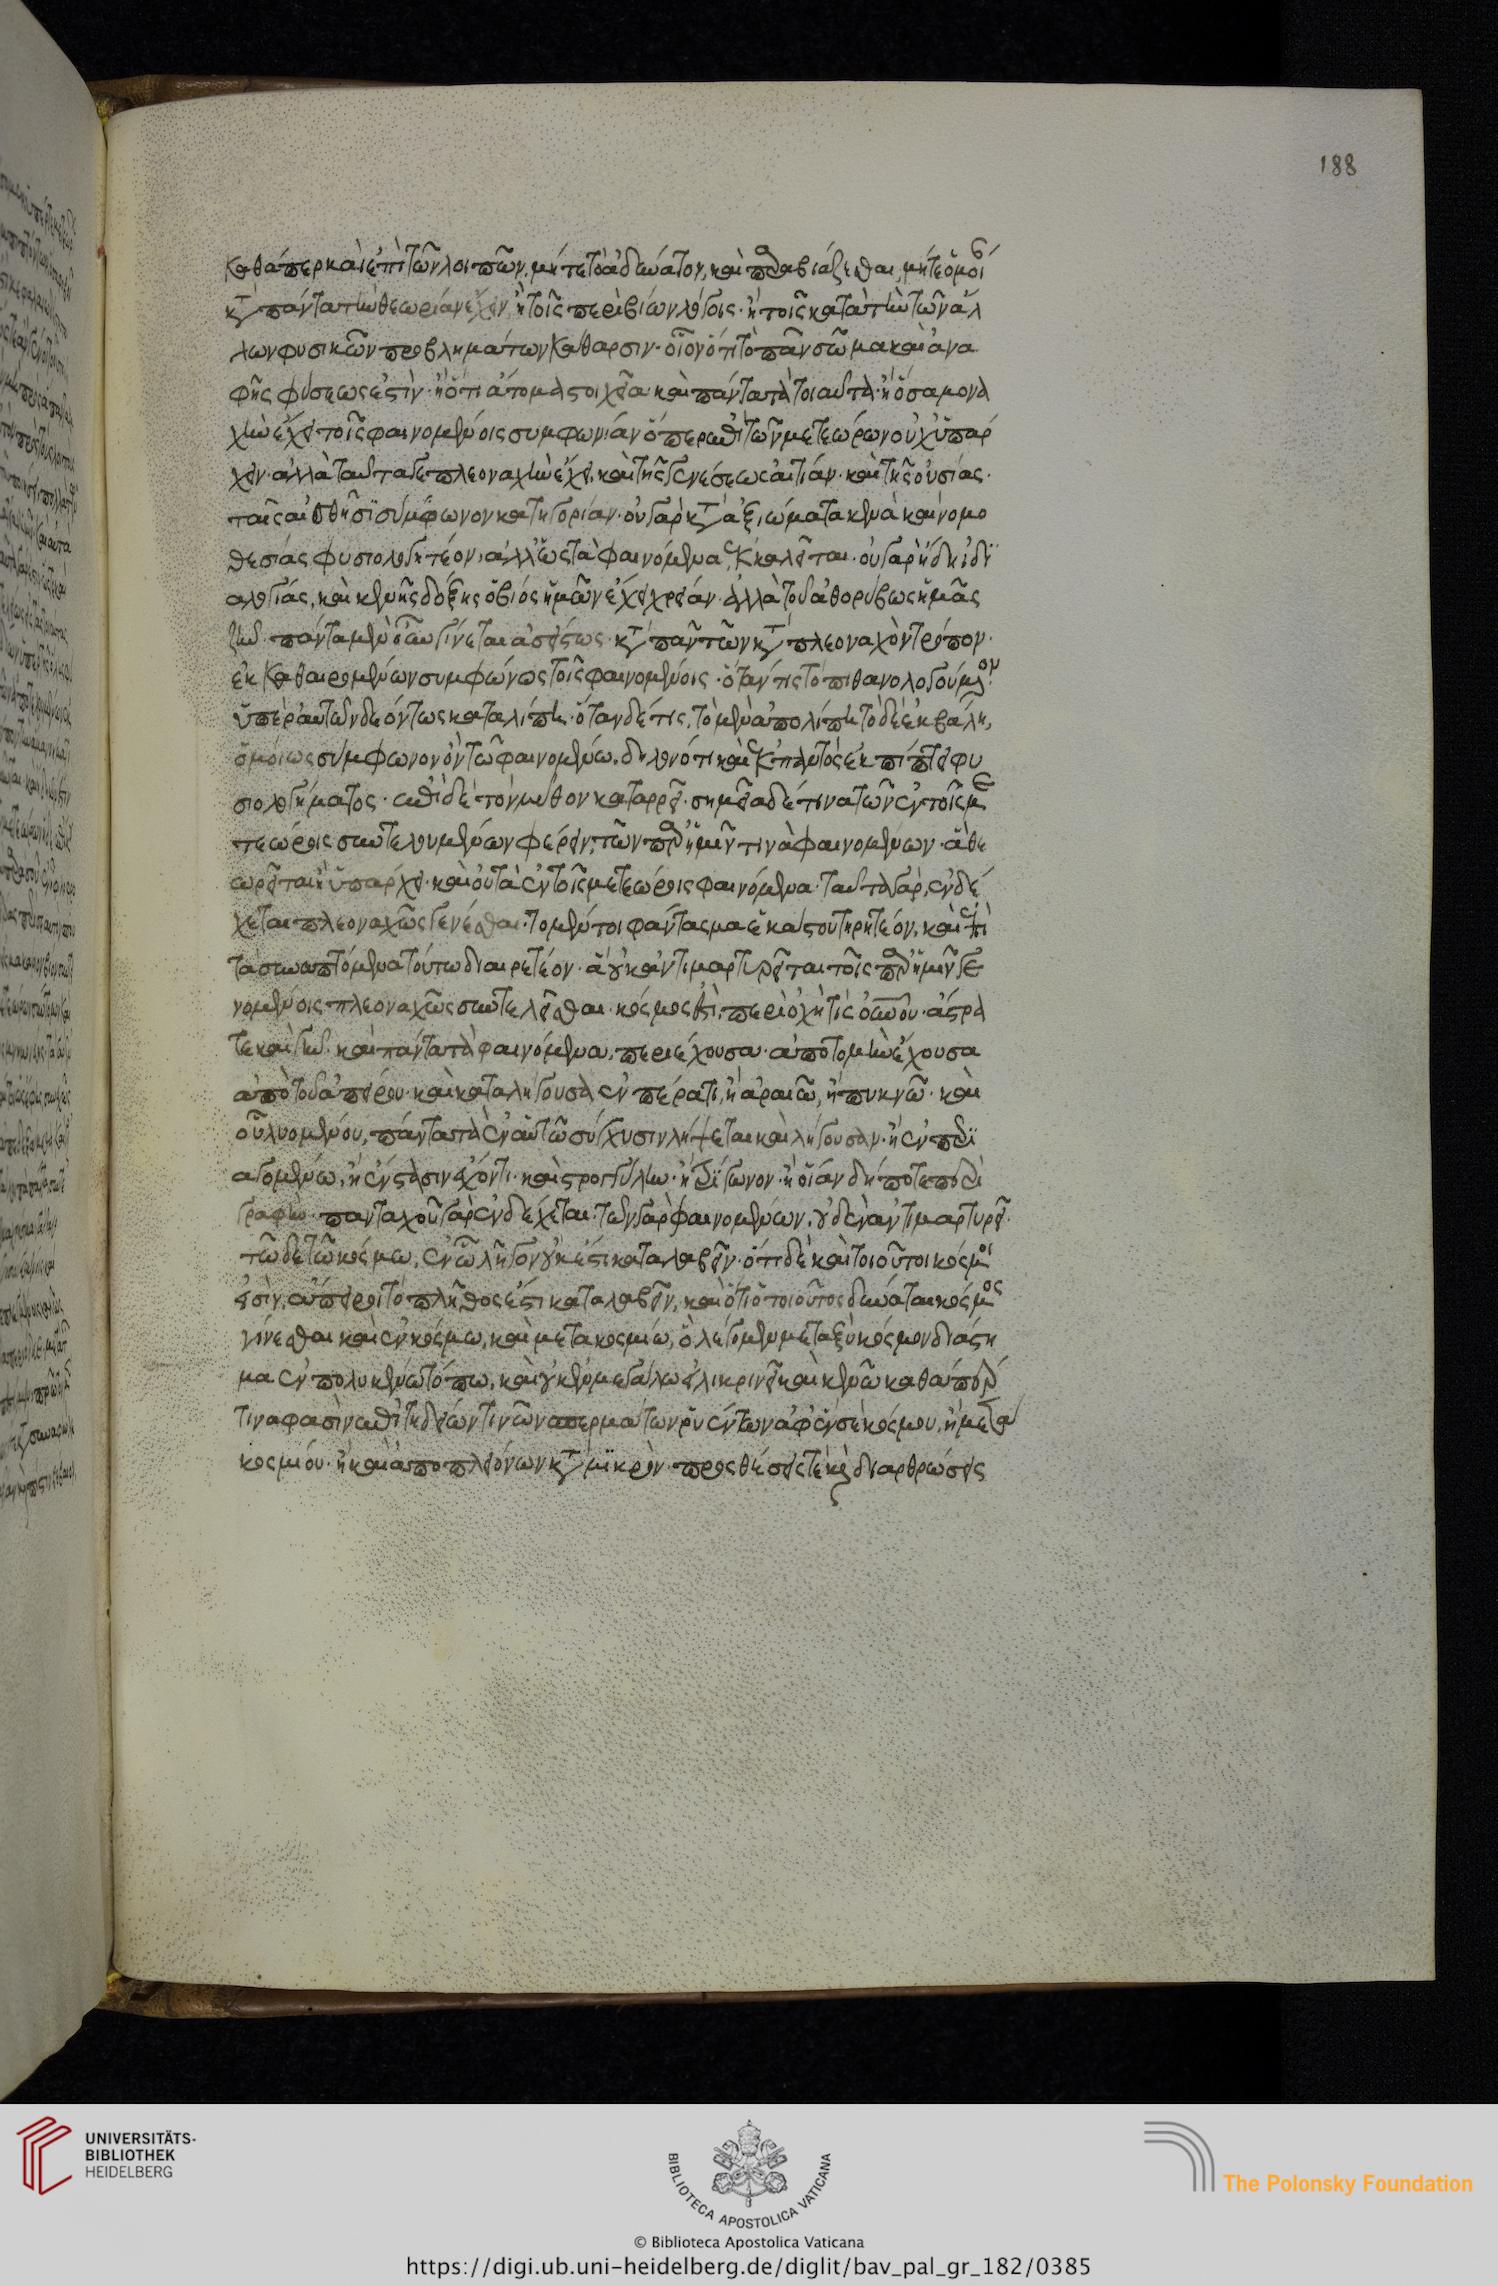 188
καθάπερ καὶ ἐπὶ τῶν λοιπῶν, μήτε τὸ ἀδύνατον, καὶ παραβιάζεσθαι, μήτε ὁμοί
κατὰ πάντα τὴν θεωρίαν ἔχειν, ἢ τοῖς περὶ βίων λόγοις· ἢ τοῖς κατὰ τὴν τῶν ἄλ
λων φυσικῶν προβλημάτων κάθαρσιν· οἷον ὅτι τὸ πᾶν σῶμα καὶ ἀνα
φῆς φύσεως ἐστίν· ἢ ὅτι ἄτομα στοιχεῖα· καὶ πάντα τὰ τοιαῦτα· ἢ ὅσα μονα
χὴν ἔχει τοῖς φαινομένοις συμφωνίαν ὅπερ ἐπὶ τῶν μετεώρων οὐχ ὑπάρ
χει· ἀλλὰ ταῦτά γε πλεοναχὴν ἔχει, καὶ τῆς γενέσεως αἰτίαν· καὶ τῆς οὐσίας·
ταῖς αἰσθήσεσι σύμφωνον κατηγορίαν· οὐ γὰρ κατὰ ἀξιώματα κενὰ καὶ νομο
θεσίας φυσιολογητέον, ἀλλ' ὡς τὰ φαινόμενα ἐκκαλεῖται· οὐ γὰρ ἤδη ἰδι
αλογίας, καὶ κενῆς δόξης ὁ βίος ἡμῶν ἔχει χρείαν· ἀλλὰ τοῦ ἀθορύβως ἡμᾶς
ζῆν· πάντα μὲν οὖν γίνεται ἀσείστως· κατὰ πάντων κατὰ πλεοναχὸν τρόπον·
ἐκκαθαιρομένων συμφώνως τοῖς φαινομένοις· ὅταν τις τὸ πιθανολογούμενον
ὑπὲρ αὐτῶν δεόντως καταλίπῃ· ὅταν δέ τις, τὸ μὲν ἀπολίπῃ τὸ δὲ ἐκβάλῃ,
ὁμοίως σύμφωνον ὂν τῷ φαινομένῳ. δῆλον ὅτι καὶ ἐκ παντὸς ἐκπίπτει φυ
σιολογήματος· ἐπὶ δὲ τὸν μῦθον καταρρεῖ· σημεῖα δέ τινα τῶν ἐν τοῖς με
τεώροις συντελουμένων φέρειν, τῶν παρ' ἡμῖν τινὰ φαινομένων· ἃ θε
ωρεῖται ᾗ ὑπάρχει· καὶ οὐ τὰ ἐν τοῖς μετεώροις φαινόμενα· ταῦτα γάρ, ἐνδέ
χεται πλεοναχῶς γενέσθαι· τὸ μέντοι φάντασμα ἑκάστου τηρητέον, καὶ ἐπὶ
τὰ συναπτόμενα τούτῳ διαιρετέον· ἃ οὐκ ἀντιμαρτυρεῖται τοῖς παρ' ἡμῖν γε
νομένοις πλεοναχῶς συντελεῖσθαι· κόσμος ἐστὶ, περιοχή τις οὐρανοῦ· ἄστρα
τε καὶ γῆν· καὶ πάντα τὰ φαινόμενα, περιέχουσα· ἀποτομὴν ἔχουσα
ἀπὸ τοῦ ἀπείρου· καὶ καταλήγουσα ἐν πέρατι, ἢ ἀραιῷ, ἢ πυκνῷ· καὶ
οὗ λυομένου, πάντα τὰ ἐν αὐτῷ σύγχυσιν λήψεται καὶ λήγουσαν· ἢ ἐν περι
αγομένῳ, ἢ ἐν στάσιν ἔχοντι· καὶ στρογγύλην· ἢ τρίγωνον· ἢ οἵαν δήποτε περι
γραφήν· πανταχοῦ γὰρ ἐνδέχεται· τῶν γὰρ φαινομένων, οὐδὲν ἀντιμαρτυρεῖ·
τῷδε τῷ κόσμῳ, ἐν ᾧ λῆγον οὐκ ἔστι καταλαβεῖν· ὅτι δὲ καὶ τοιοῦτοι κόσμοι
εἰσὶν, ἄπειροι τὸ πλῆθος ἔστι καταλαβεῖν, καὶ ὅτι ὁ τοιοῦτος δύναται κόσμος
γίνεσθαι καὶ ἐν κόσμῳ, καὶ μετακοσμίῳ, ὃ λέγομεν μεταξὺ κόσμων διάστη
μα ἐν πολυκένῳ τόπῳ, καὶ οὐκ ἐν μεγάλῳ εἰλικρινεῖ καὶ κενῷ καθάπερ
τινα φασὶν ἐπιτηδείων τινῶν σπερμάτων ῥυέντων ἀφ' ἑνός κόσμου, ἢ μετα
κοσμίου· ἢ καὶ ἀπὸ πλειόνων κατὰ μικρὸν· προσθέσεις τε καὶ διαρθρώσεις
UNIVERSITÄTS-
BIBLIOTHEK
HEIDELBERG
BIBLIOTECA APOSTOLICA VATICANA
© Biblioteca Apostolica Vaticana
The Polonsky Foundation
https://digi.ub.uni-heidelberg.de/diglit/bav_pal_gr_182/0385